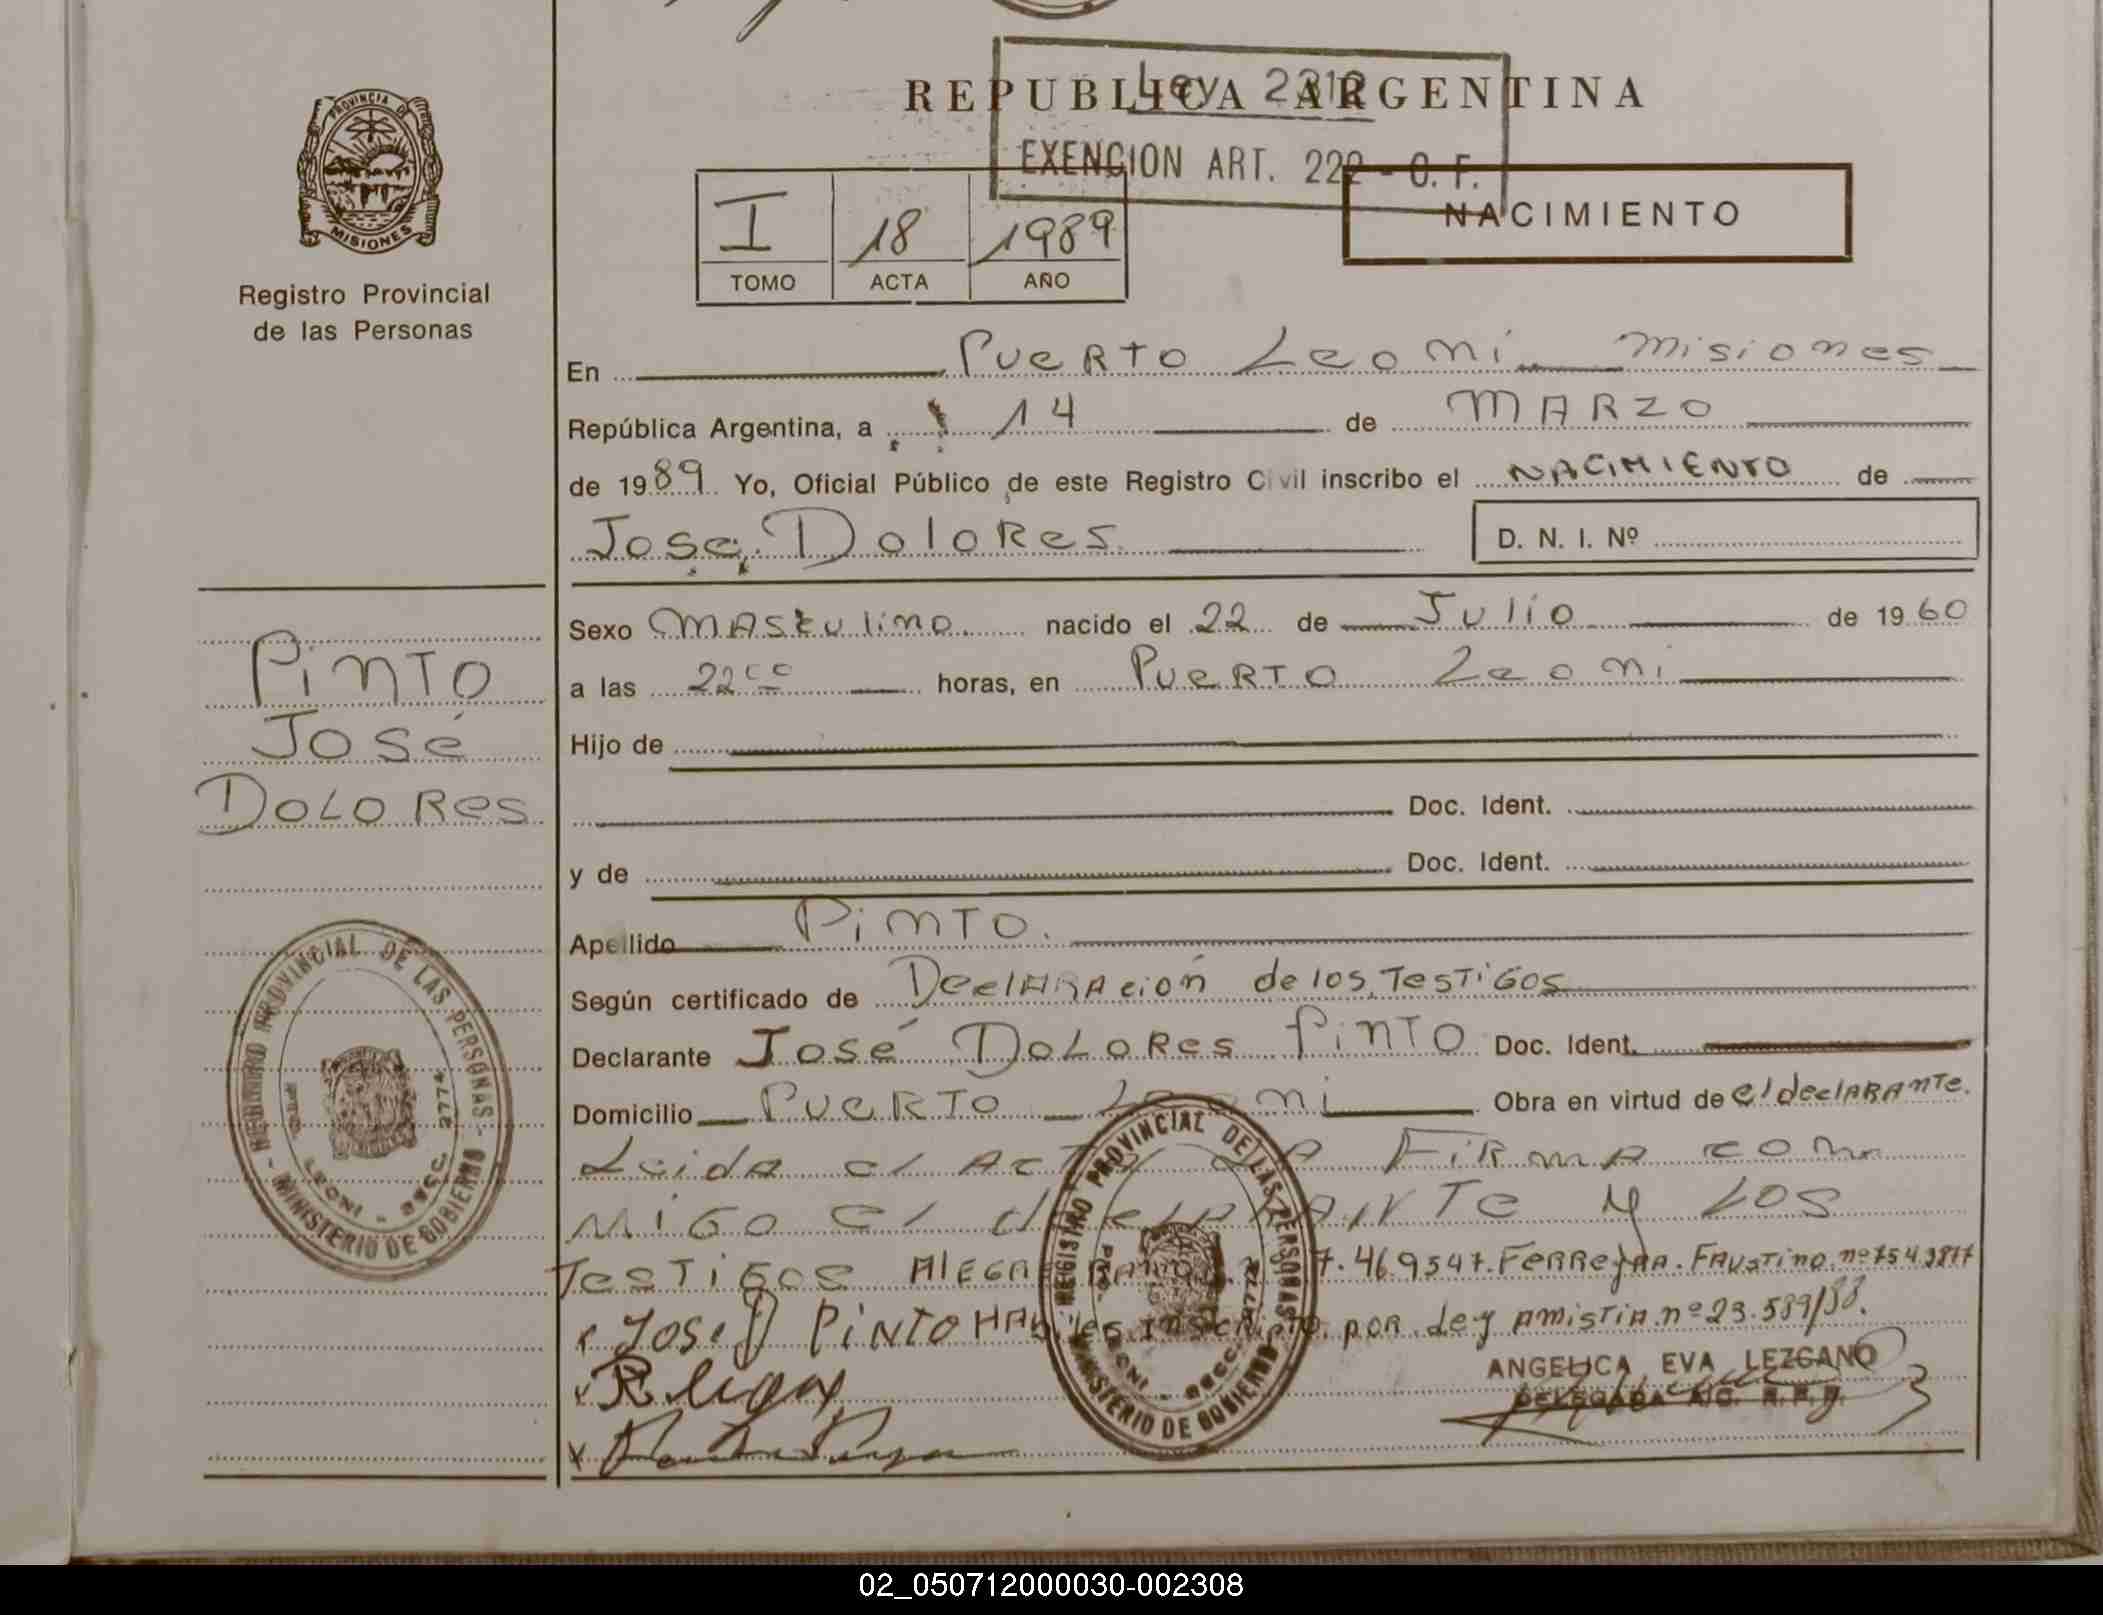 REPUBLICA ARGENTINA
Ley 2312
EXENCION ART. 222 - C. F.
NACIMIENTO
PROVINCIA DE
MISIONES
Registro Provincial
de las Personas
I 18 1989
TOMO ACTA AÑO
En Puerto Leoni Misiones
República Argentina, a 14 de MARZO
de 1989 Yo, Oficial Público de este Registro Civil inscribo el NACIMIENTO de
Jose Dolores D. N. I. Nº
Sexo Masculino nacido el 22 de Julio de 1960
a las 22 horas, en Puerto Leoni
Hijo de
Doc. Ident.
y de Doc. Ident.
Apellido Pinto.
Según certificado de Declaración de los Testigos
Declarante José Dolores Pinto Doc. Ident.
Domicilio Puerto Leoni Obra en virtud de el declarante.
Leida el Firma con
migo el y Los
Testigos 7.469547. Ferreyra. Faustino. nº 7543877
Jose D Pinto por Ley Amistia nº 23.589/88.
ANGELICA EVA LEZCANO
DELEGADA
PINTO
José
DOLORES
REGISTRO PROVINCIAL DE LAS PERSONAS
MINISTERIO DE GOBIERNO
PTO. LEONI - SECC. 2774
REGISTRO PROVINCIAL DE LAS PERSONAS
MINISTERIO DE GOBIERNO
02_050712000030-002308